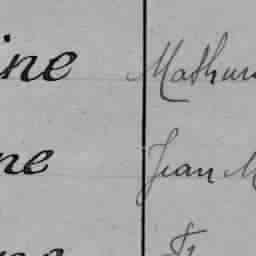 ine Mathur
ne Jean M